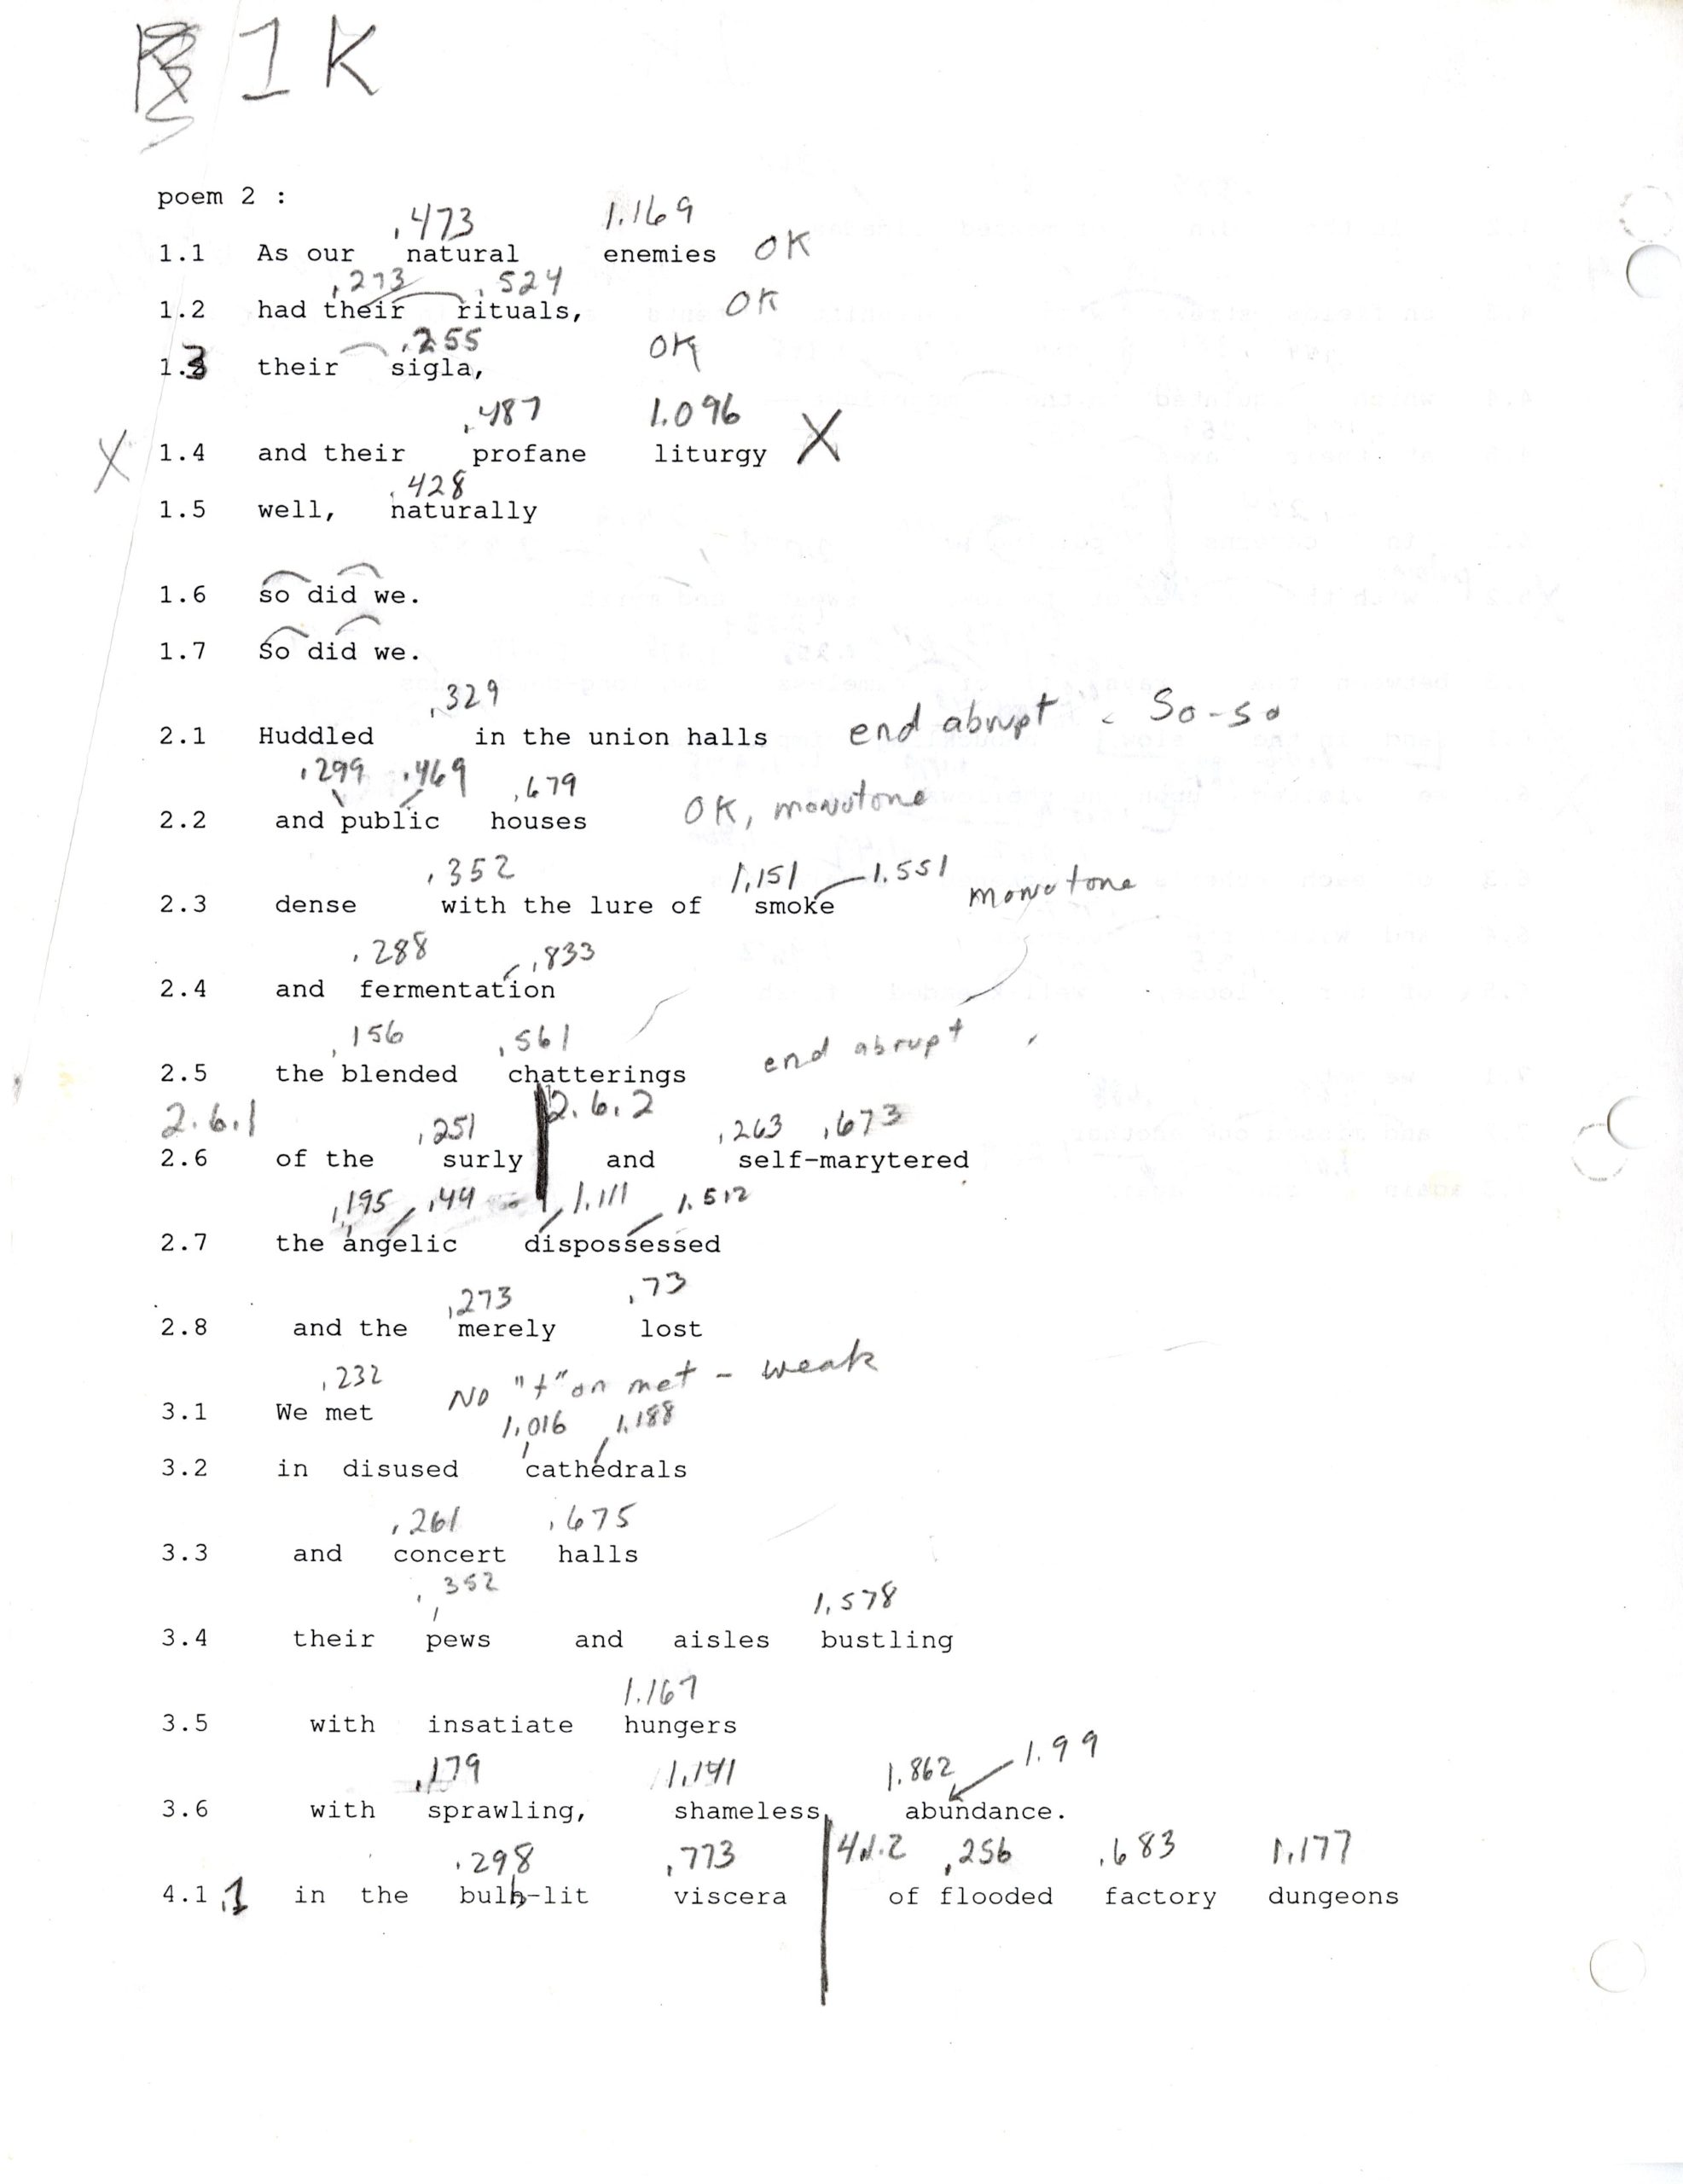 1 K
poem 2 :
.473 1.169
1.1 As our natural enemies OK
.273 .524
1.2 had their rituals, OK
.255
1.3 their sigla, OK
.487 1.096
X 1.4 and their profane liturgy X
.428
1.5 well, naturally
1.6 so did we.
1.7 So did we.
.329
2.1 Huddled in the union halls end abrupt . So-so
.299 .469 .679
2.2 and public houses OK, monotone
.352 1.151 1.551
2.3 dense with the lure of smoke monotone
.288 .833
2.4 and fermentation
.156 .561
2.5 the blended chatterings end abrupt
2.6.1 .251 2.6.2 .263 .673
2.6 of the surly and self-marytered
.195 .44 1.111 1.512
2.7 the angelic dispossessed
.273 .73
2.8 and the merely lost
.232
3.1 We met NO "t" on met - weak
1.016 1.188
3.2 in disused cathedrals
.261 .675
3.3 and concert halls
.352 1.578
3.4 their pews and aisles bustling
1.167
3.5 with insatiate hungers
.179 1.141 1.862 1.99
3.6 with sprawling, shameless, abundance.
.298 .773 4.1.2 .256 .683 1.177
4.1.1 in the bulb-lit viscera of flooded factory dungeons